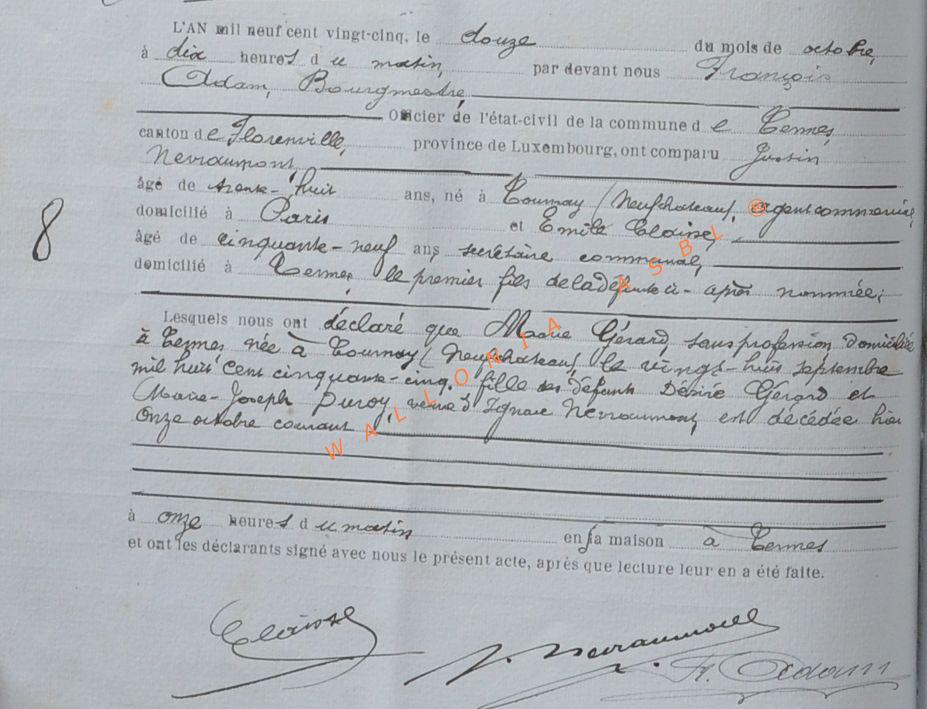 L'AN mil neuf cent vingt-cinq, le douze du mois de octobre,
à dix heures du matin, par devant nous François
Adam, Bourgmestre,
Officier de l'état-civil de la commune de Termes,
canton de Florenville, province de Luxembourg, ont comparu Justin
Nevraumont,
âgé de trente-huit ans, né à Tournay (Neufchateau), agent commercial,
domicilié à Paris et Emile Claisse,
âgé de cinquante-neuf ans secrétaire communal,
domicilié à Termes, le premier fils de la défunte ci-après nommée;
8
Lesquels nous ont déclaré que Marie Gérard, sans profession domiciliée
à Termes née à Tournay (Neufchateau) le vingt-huit septembre
mil huit cent cinquante-cinq, fille des défunts Désiré Gérard et
Marie-Joseph Duroy, veuve d'Ignace Nevraumont, est décédée hier
onze octobre courant,
à onze heures du matin en sa maison à Termes
et ont les déclarants signé avec nous le présent acte, après que lecture leur en a été faite.
Claisse
J. Nevraumont
Fr. Adam
WALLONIA ASBL